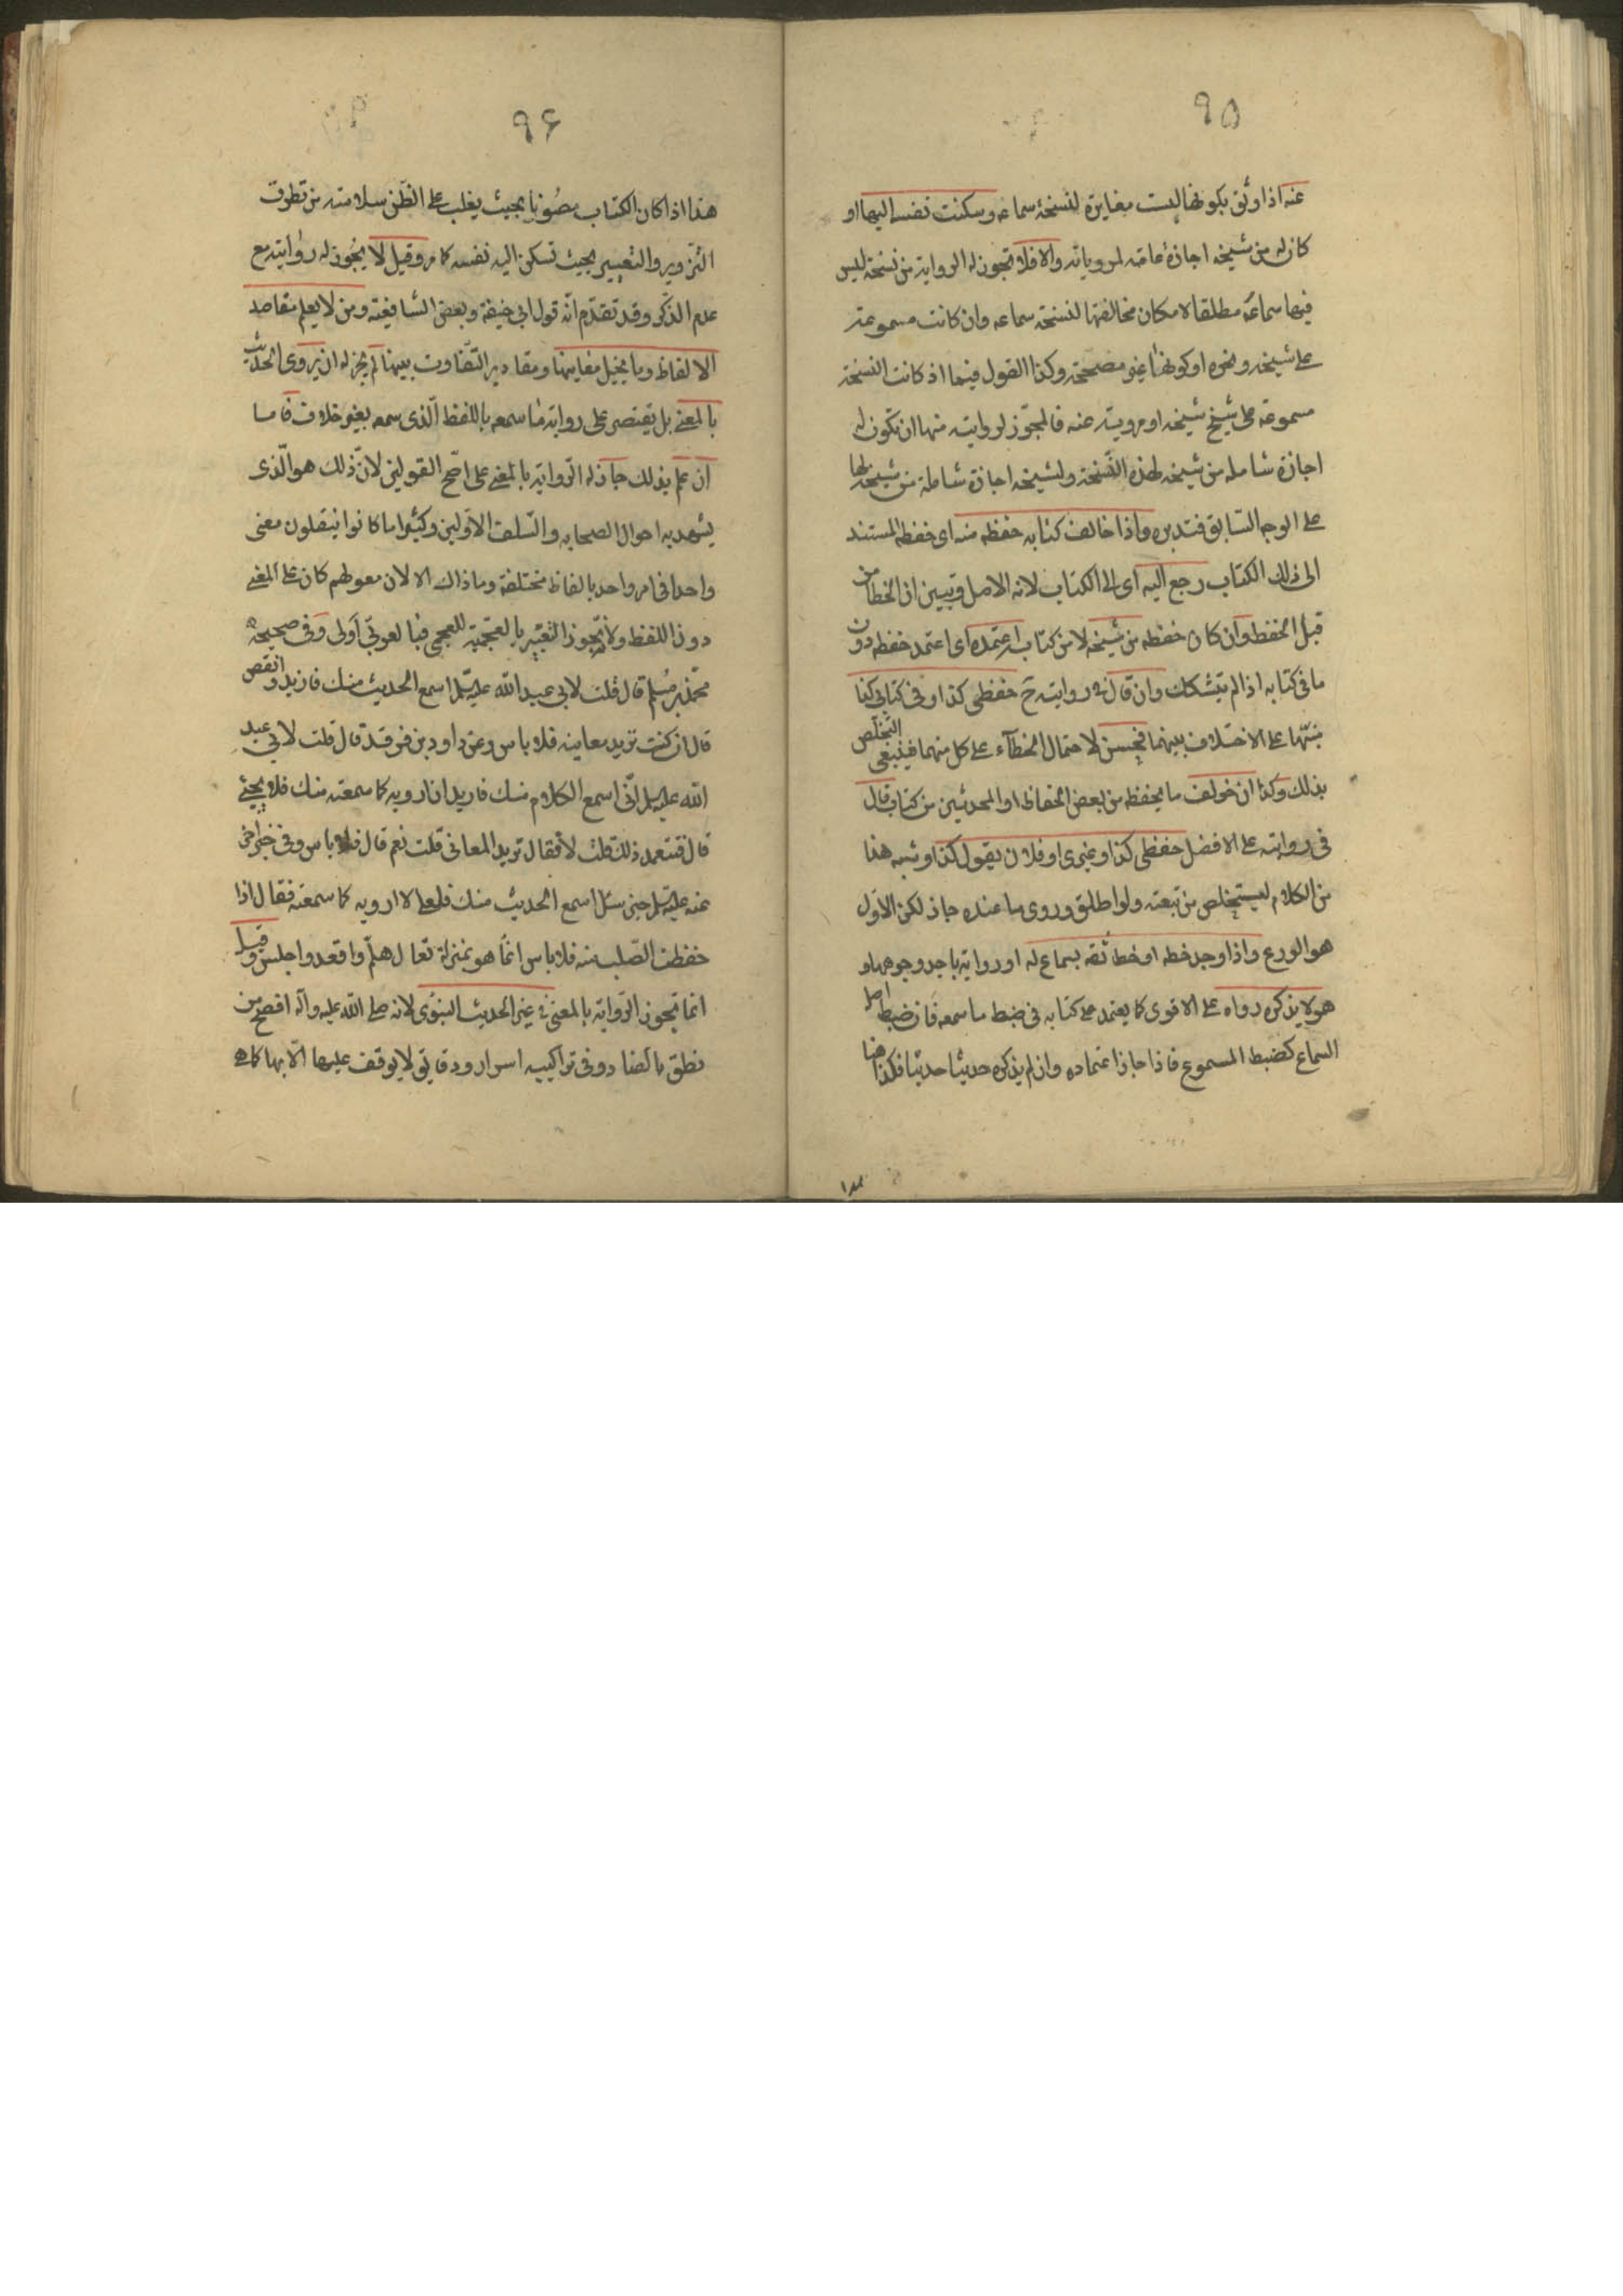 ٩٥
عنه اذا وثق بكونها ليست مغايرة لنسخة سماعه وسكنت نفسه اليها او
كان له من شيخه اجازة عامة لمروياته والا فلا تجوز له الرواية من نسخة ليس
فيها سماعه مطلقا لامكان مخالفتها لنسخة سماعه وان كانت مسموعة
على شيخه ونحوه او كونها غير مصححة وكذا القول فيما اذ كانت النسخة
مسموعة على شيخ شيخه او مروية عنه فالمجوز لروايته منها ان تكون له
اجازة شاملة من شيخه لهذه النسخة ولشيخه اجازة شاملة من شيخه لها
على الوجه السابق فتدبره واذا خالف كتابه حفظه منه اى حفظه المستند
الى ذلك الكتاب رجع اليه اى الى الكتاب لانه الاصل وتبين ان الخطا من
قبل الحفظ وان كان حفظه من شيخه لا من كتابه اعتمده اى اعتمد حفظه دون
ما فى كتابه اذا لم يتشكك وان قال فى روايته ح حفظى كذا وفى كتابى كذا
منبها على الاختلاف بينهما فحسن لاحتمال الخطآء على كل منهما فينبغى التخلص
بذلك وكذا ان خولف ما يحفظه من بعض الحفاظ او المحدثين من كتاب قال
فى روايته على الافضل حفظى كذا وغيرى او فلان يقول كذا وشبه هذا
من الكلام ليستخلص من تبعته ولو اطلق وروى ما عنده جاز لكن الاول
هو الورع واذا وجد خطه او خط ثقة بسماع له او رواية باحد وجوهها و
هو لا يذكره رواه على الاقوى كما يعتمد على كتابه فى ضبط ما سمعه فان ضبط اصل
السماع كضبط المسموع فاذا جاز اعتماده وان لم يذكره حديثا حديثا فكذا هنا
٩٦
هذا اذا كان الكتاب مصونا بحيث يغلب على الظن سلامته من تطرق
التزوير والتغيير بحيث تسكن اليه نفسه كما مر وقيل لا يجوز له روايته مع
عدم الذكر وقد تقدم انه قول ابى حنيفة وبعض الشافعية ومن لا يعلم مقاصد
الالفاظ وما يخيل معانيها ومقادير التفاوت بينها لم يجز له ان يروى الحديث
بالمعنى بل يقتصر على رواية ما سمعه باللفظ الذى سمعه بغير خلاف فاما
ان علم بذلك جاز له الرواية بالمعنى على اصح القولين لان ذلك هو الذى
يشهد به احوال الصحابه والسلف الاولين وكثيرا ما كانوا ينقلون معنى
واحدا فى امر واحد بالفاظ مختلفة وما ذاك الا لان معولهم كان على المعنى
دون اللفظ ولانه يجوز التعبير بالعجمية للعجمى فبالعربى اولى وفى صحيحة
محمد بن مسلم قال قلت لابى عبد الله عليه السلم اسمع الحديث منك فازيد وانقص
قال ان كنت تريد معانيه فلا باس وعن داود بن فرقد قال قلت لابى عبد
الله عليه السلم انى اسمع الكلام منك فاريد ان ارويه كما سمعته منك فلا يجئ
قال فتتعمد ذلك قلت لا فقال تريد المعانى قلت نعم قال فلا باس وفى خبر اخر
عنه عليه السلم حين سئل اسمع الحديث منك فلعلى لا ارويه كما سمعته فقال اذا
حفظت الصلب منه فلا باس انما هو بمنزلة تعال هلم واقعد واجلس وقيل
انما تجوز الرواية بالمعنى فى غير الحديث النبوى لانه صلى الله عليه واله افصح من
نطق بالضاد وفى تراكيبه اسرار ودقايق لا يوقف عليها الا بها كما هى